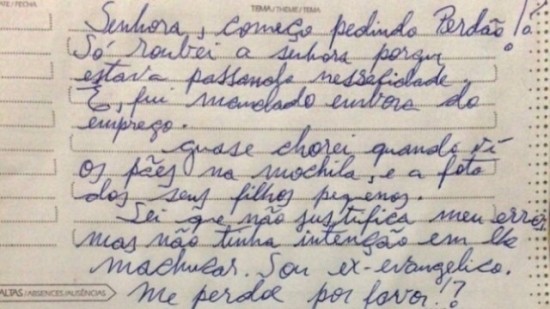 ATE/FECHA
TEMA/THEME/TEMA
Senhora, começo pedindo Perdão!
Só roubei a senhora porque
estava passando nessefidade.
E, fui mandado embora do
emprego.
quase chorei quando vi
os pães na mochila, e a foto
dos seus filhos pequenos.
Sei que não justifica meu erro,
mas não tinha intenção em lhe
machucar. Sou ex-evangelico.
ALTAS/ABSENCES/AUSÊNCIAS
Me perdoe por favor!?